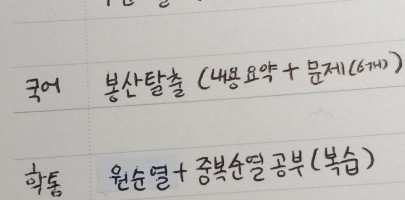 국어 봉산탈출 (내용요약 + 문제(6개))
확통 원순열 + 중복순열 공부 (복습)